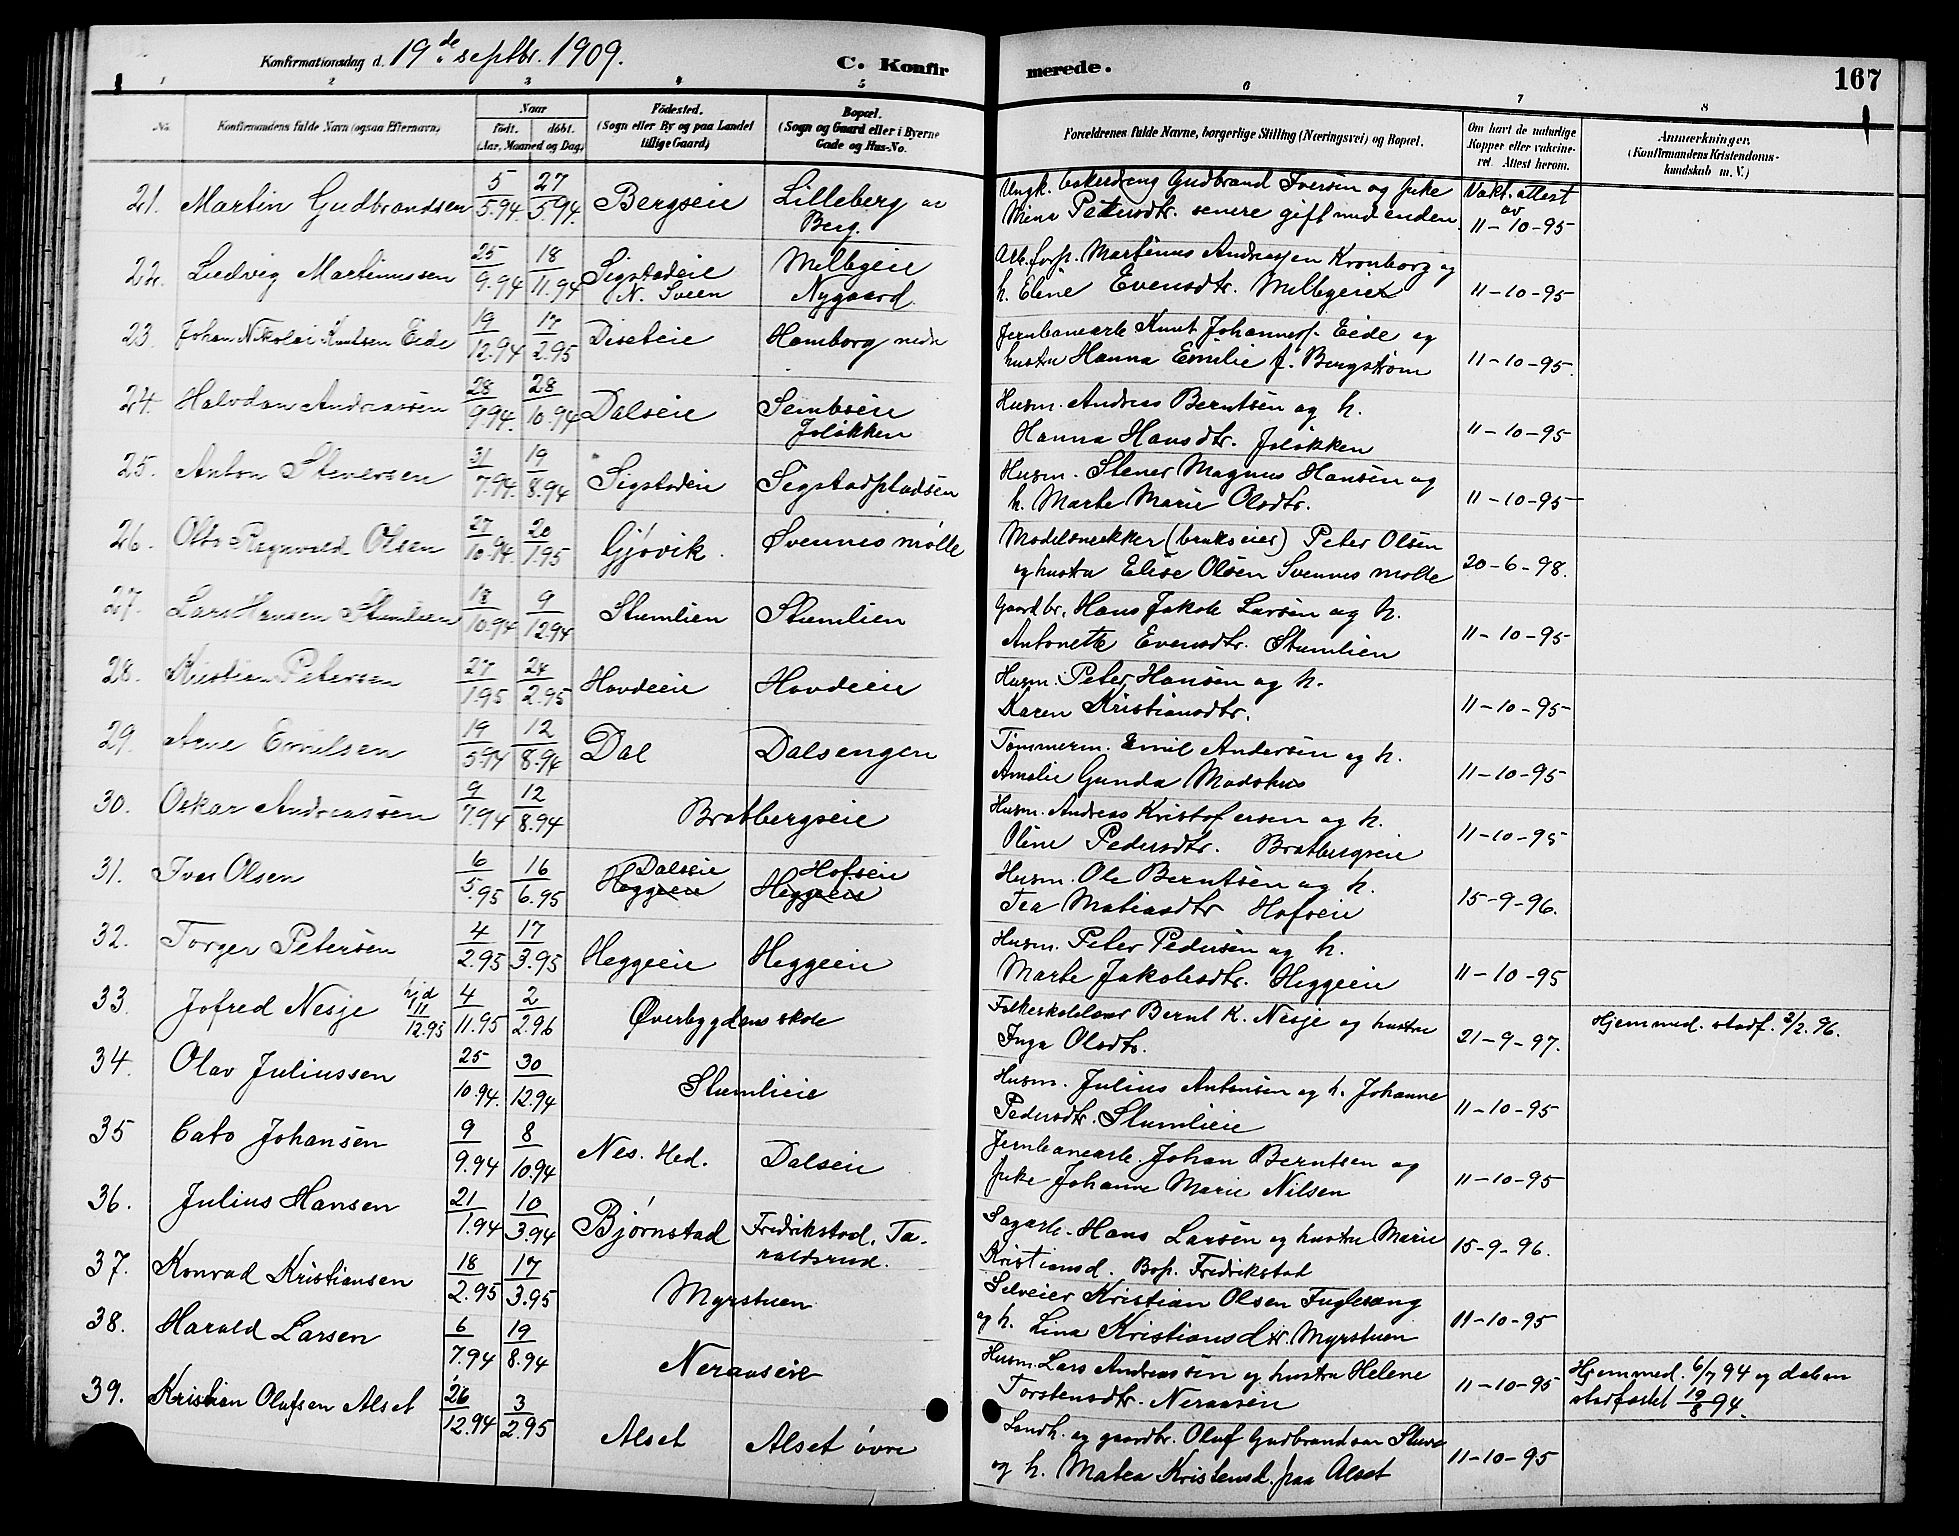 Konfirmationsdag d. 19de septbr. 1909.
C. Konfirmerede.
167
1 2 3 4 5 6 7 8
No. Konfirmandens fulde Navn (ogsaa Efternavn)
Naar
födt. döbt.
(Aar, Maaned og Dag)
Födested.
(Sogn eller By og paa Landet tillige Gaard)
Bopæl.
(Sogn og Gaard eller i Byerne Gade og Hus-No.
Forældrenes fulde Navne, borgerlige Stilling (Næringsvei) og Bopæl.
Om havt de naturlige Kopper eller vakcineret. Attest herom.
Anmærkninger.
(Konfirmandens Kristendomskundskab m. V.)
21. Martin Gudbrandsen 5/5.94 27/5.94 Bergseie Lilleberg av Berg. Ungk. bakerdreng Gudbrand Iversen og pike
Mina Pettersdtr. senere gift med enden. Vakt. attest av 11-10-95
22. Ludvig Martinussen 25/9.94 18/11.94 Sigstadeie N. Sveen Melbyeie Nygaard Arb. forp. Martinus Andreassen Kronborg og
h. Eline Evensdtr. Melbyeiet 11-10-95
23. Johan Nikolai Knutsen Eide 19/12.94 17/2.95 Diseteie Hamborg nedre Jernbanearb. Knut Johanness. Eide og
hustru Hanna Emilie f. Bergstrøm 11-10-95.
24. Halvdan Andreassen 28/9.94. 28/10.94 Dalseie Sembseie Joløkken Husm. Andreas Berntsen og h.
Hanna Hansdtr. Joløkken 11-10-95
25. Anton Stenersen 31/7.94. 19/8.94 Sigstadeie Sigstadpladsen Husm. Stener Magnus Hansen og
h. Marte Marie Olsdtr. 11-10-95
26. Otto Ragnvald Olsen 27/10.94. 20/1.95 Gjøvik. Svennes mølle Modelsnekker (brukseier) Peter Olsen
og hustru Elise Olsen Svennes mølle 20-6-98.
27. Lars Hansen Stumlien 18/10.94 9/12.94 Stumlien Stumlien Gaardbr. Hans Jakob Larsen og h.
Antonette Evensdtr. Stumlien 11-10-95
28. Kristian Petersen 27/1.95 24/2.95 Hovdeeie Hovdeeie Husm. Peter Hansen og h.
Karen Kristiansdtr. 11-10-95
29. Arne Emilsen 19/5.94 12/8.94 Dal Dalsengen Tømmerm. Emil Andersen og h.
Amalie Gunda Madshus 11-10-95
30. Oskar Andreassen 9/7.94 12/8.94 Bratbergseie Husm. Andreas Kristofersen og h.
Oline Pedersdtr. Bratbergseie 11-10-95
31. Iver Olsen 6/5.95 16/6.95 Dalseie Heggeeie Hofseie Heggeeie Husm. Ole Berntsen og h.
Tea Matiasdtr Hofseie 15-9-96.
32. Torger Petersen 4/2.95 17/3.95 Heggeeie Heggeeie Husm. Peter Pedersen og h.
Marte Jakobsdtr. Heggeeie 11-10-95
33. Jofred Nesje hjd 11/12.95 4/11.95 2/2.96 Øverbygdens skole Folkeskolelærer Bernt K. Nesje og hustru
Inga Olsdtr. 21-9-97. Hjemmed. stadf. 2/2.96.
34. Olav Juliussen 25/10.94. 30/12.94 Stumlieie Husm. Julius Antonsen og h. Johanne
Pedersdtr. Stumlieie 11-10-95
35 Cato Johansen 9/9.94 8/10.94 Nes. Hed. Dalseie Jernbanearb. Johan Berntsen og
pike Johanne Marie Nilsen 11-10-95
36. Julius Hansen 21/1.94 10/3.94 Bjørnstad Fredrikstad. Taraldsrud. Sagarb. Hans Larsen og hustru Marie
Kristiansd. Bop. Fredrikstad 15-9-96.
37. Konrad Kristiansen 18/2.95 17/3.95 Myrstuen Selveier Kristian Olsen Fuglesang
og h. Lina Kristiansdtr. Myrstuen 11-10-95
38. Harald Larsen 6/7.94 19/8.94 Neraaseie Husm. Lars Andreassen og hustru Helene
Torstensdtr. Neraaseie 11-10-95 Hjemmed. 6/7 94 og daaben
stadfæstet 19/8 94.
39. Kristian Olufsen Alset 26/12.94 3/2.95 Alset Alset övre Landh. og gaardbr. Oluf Gudbrandsen Stuve
og h. Matea Kristensd. paa Alset 11-10-95